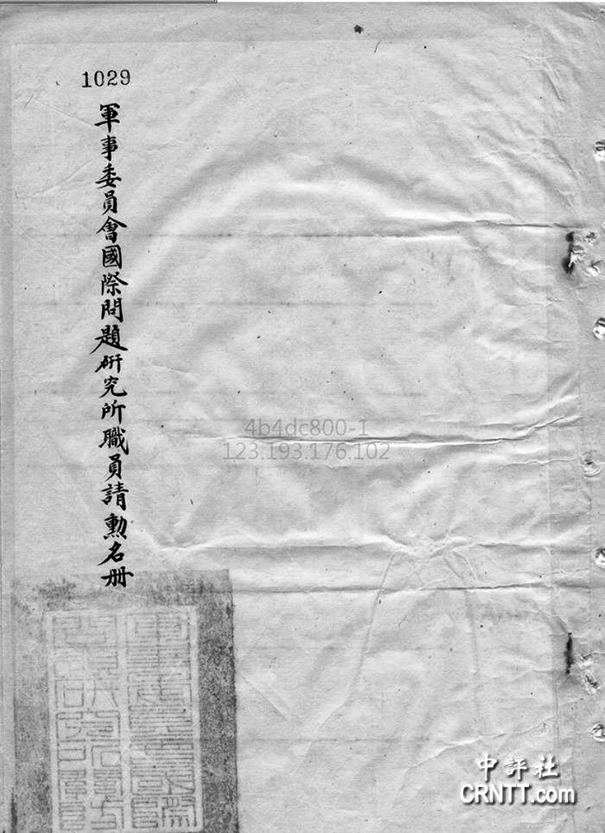 1029
軍事委員會國際問題研究所職員請勳名册
4b4dc800-1
123.193.176.102
中評社
CRNTT.com